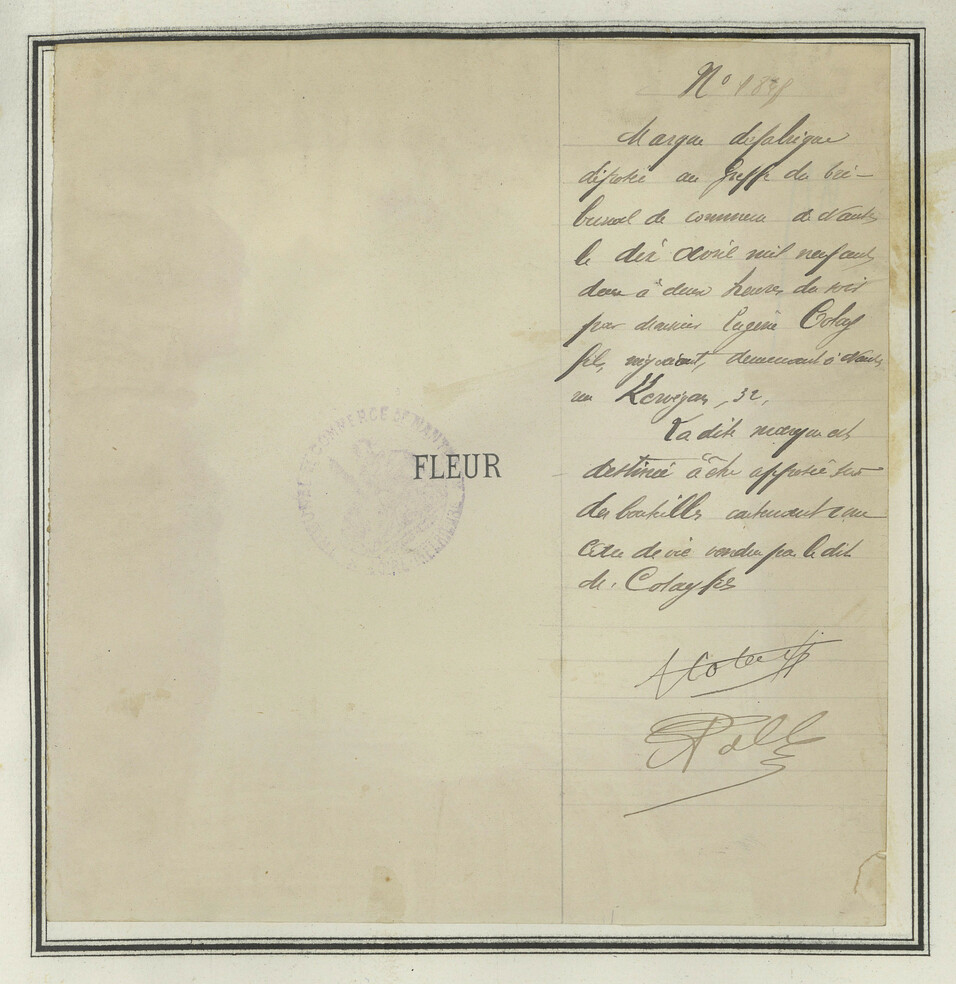 N° 1838
Marque de fabrique
déposée au Greffe du tri-
bunal de commerce de Nantes
le dix avril mil neuf cent
deux à deux heures du soir
par Eugène Colas
fils, négociant, demeurant à Nantes
rue Kervégan, 32.
La dite marque est
destinée à être apposée sur
des bouteilles contenant une
eau de vie vendue par le dit
Colas fils
FLEUR
TRIBUNAL DE COMMERCE DE NANTES
LOIRE INFÉRIEURE